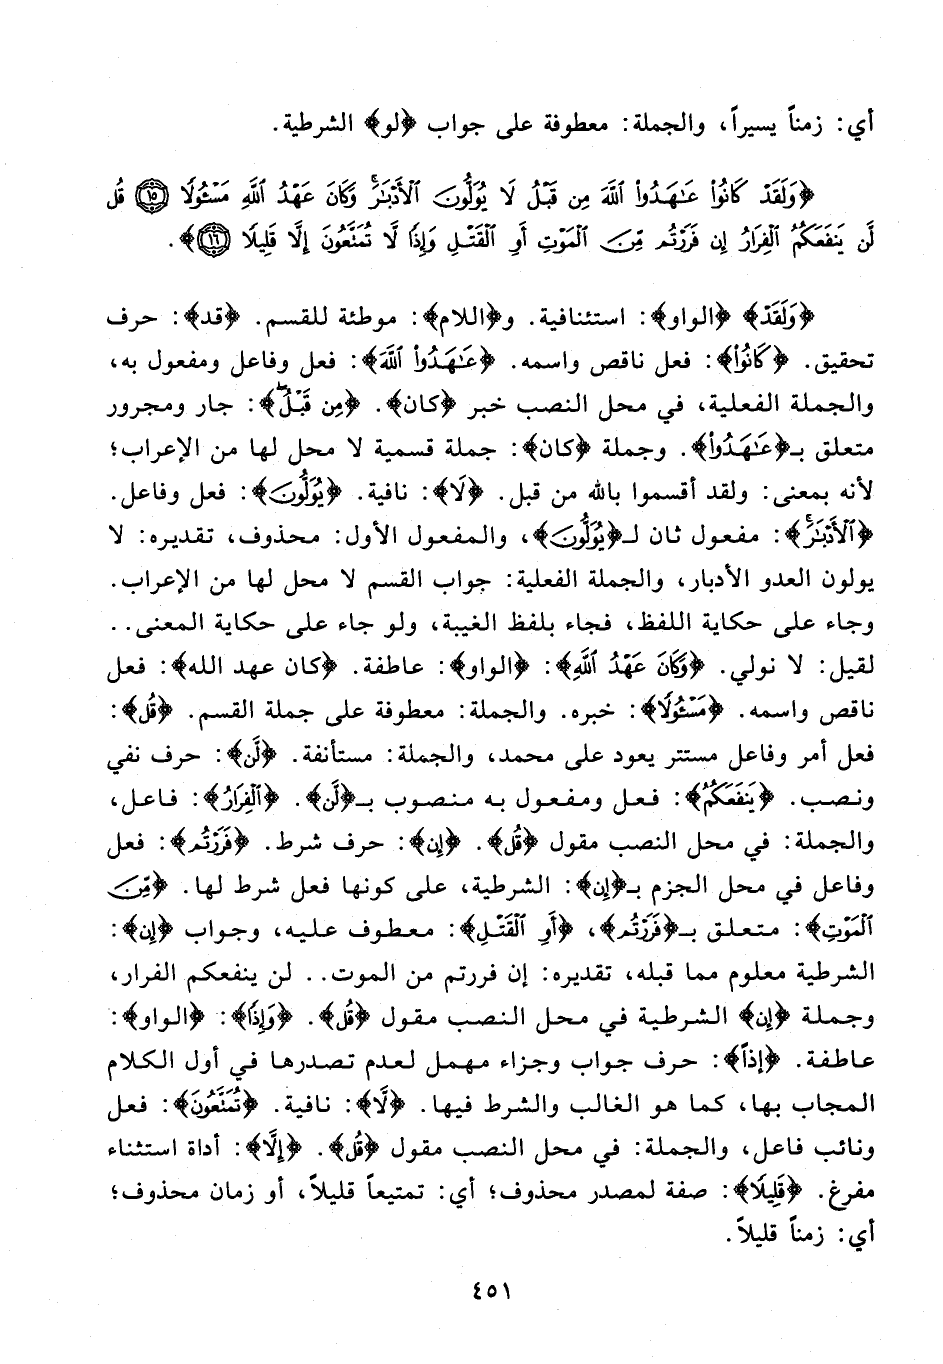 أي: زمناً يسيراً، والجملة: معطوفة على جواب ﴿لو﴾ الشرطية.
﴿وَلَقَدْ كَانُوا۟ عَـٰهَدُوا۟ ٱللَّهَ مِن قَبْلُ لَا يُوَلُّونَ ٱلْأَدْبَـٰرَ ۚ وَكَانَ عَهْدُ ٱللَّهِ مَسْـُٔولًا ١٥ قُل
لَّن يَنفَعَكُمُ ٱلْفِرَارُ إِن فَرَرْتُم مِّنَ ٱلْمَوْتِ أَوِ ٱلْقَتْلِ وَإِذًا لَّا تُمَتَّعُونَ إِلَّا قَلِيلًا ١٦﴾.
﴿وَلَقَدْ﴾ ﴿الواو﴾: استئنافية. و﴿اللام﴾: موطئة للقسم. ﴿قد﴾: حرف
تحقيق. ﴿كَانُوا۟﴾: فعل ناقص واسمه. ﴿عَـٰهَدُوا۟ ٱللَّهَ﴾: فعل وفاعل ومفعول به،
والجملة الفعلية، في محل النصب خبر ﴿كان﴾. ﴿مِن قَبْلُ﴾: جار ومجرور
متعلق بـ﴿عَـٰهَدُوا۟﴾. وجملة ﴿كان﴾: جملة قسمية لا محل لها من الإعراب؛
لأنه بمعنى: ولقد أقسموا بالله من قبل. ﴿لَا﴾: نافية. ﴿يُوَلُّونَ﴾: فعل وفاعل.
﴿ٱلْأَدْبَـٰرَ ۚ﴾: مفعول ثان لـ﴿يُوَلُّونَ﴾، والمفعول الأول: محذوف، تقديره: لا
يولون العدو الأدبار، والجملة الفعلية: جواب القسم لا محل لها من الإعراب.
وجاء على حكاية اللفظ، فجاء بلفظ الغيبة، ولو جاء على حكاية المعنى..
لقيل: لا نولي. ﴿وَكَانَ عَهْدُ ٱللَّهِ﴾: ﴿الواو﴾: عاطفة. ﴿كان عهد الله﴾: فعل
ناقص واسمه. ﴿مَسْـُٔولًا﴾: خبره. والجملة: معطوفة على جملة القسم. ﴿قُل﴾:
فعل أمر وفاعل مستتر يعود على محمد، والجملة: مستأنفة. ﴿لَّن﴾: حرف نفي
ونصب. ﴿يَنفَعَكُمُ﴾: فعل ومفعول به منصوب بـ﴿لَّن﴾. ﴿ٱلْفِرَارُ﴾: فاعل،
والجملة: في محل النصب مقول ﴿قُل﴾. ﴿إِن﴾: حرف شرط. ﴿فَرَرْتُم﴾: فعل
وفاعل في محل الجزم بـ﴿إِن﴾: الشرطية، على كونها فعل شرط لها. ﴿مِّنَ
ٱلْمَوْتِ﴾: متعلق بـ﴿فَرَرْتُم﴾، ﴿أَوِ ٱلْقَتْلِ﴾: معطوف عليه، وجواب ﴿إِن﴾:
الشرطية معلوم مما قبله، تقديره: إن فررتم من الموت.. لن ينفعكم الفرار،
وجملة ﴿إِن﴾ الشرطية في محل النصب مقول ﴿قُل﴾. ﴿وَإِذًا﴾: ﴿الواو﴾:
عاطفة. ﴿إذاً﴾: حرف جواب وجزاء مهمل لعدم تصدرها في أول الكلام
المجاب بها، كما هو الغالب والشرط فيها. ﴿لَّا﴾: نافية. ﴿تُمَتَّعُونَ﴾: فعل
ونائب فاعل، والجملة: في محل النصب مقول ﴿قُل﴾. ﴿إِلَّا﴾: أداة استثناء
مفرغ. ﴿قَلِيلًا﴾: صفة لمصدر محذوف؛ أي: تمتيعاً قليلاً، أو زمان محذوف؛
أي: زمناً قليلاً.
٤٥١